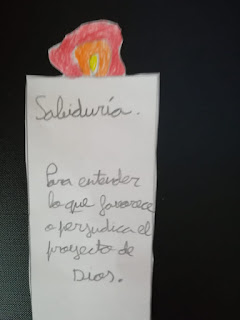 Sabiduría.
Para entender
lo que favorece
o perjudica el
proyecto de
Dios.